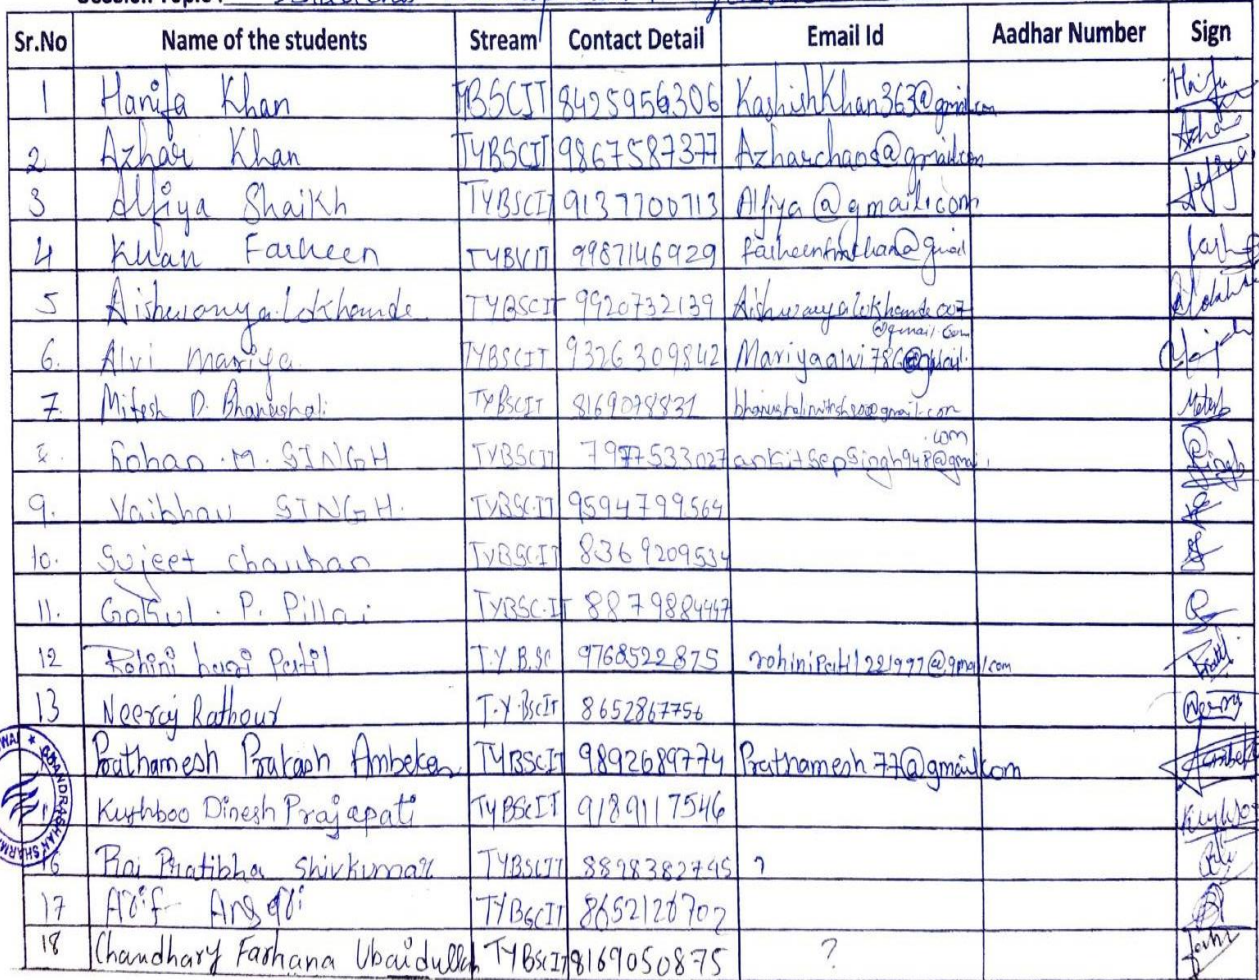 Sr.No Name of the students Stream Contact Detail Email Id Aadhar Number Sign
1 Hanifa Khan TYBSCIT 8425956306 KashishKhan363@gmail.com
2 Azhar Khan TYBSCIT 9867587377 Azharchaos@gmail.com
3 Alfiya Shaikh TYBSCIT 9137700713 Alfiya@gmail.com
4 Khan Farheen 9987146929
5 Aishwarya Lokhande TYBSCIT 9920732139 Aishwaryalokhande007
@gmail.com
6. Alvi Mariya TYBSCIT 9326309842 Mariyaalvi786@gmail.
7. Mitesh D. Bhanushali TYBSCIT 8169078831
.com
8. Rohan .M. SINGH TYBSCIT 7977533027 ankitsepsingh948@gmai
9. Vaibhav SINGH. TYBSC.IT 9594799564
10. Sujeet chauhan TYBSCIT 8369209534
11. Gokul . P. Pillai TYBSC.IT 8879884467
12 Rohini hari Patil T.Y.B.SC 9768522875 rohinipatil221997@gmail.com
13 Neeraj Rathour T.Y.BscIT 8652867756
Prathamesh Prakash Ambekar TYBSCIT 9892689774 Prathamesh77@gmail.com
Kushboo Dinesh Prajapati TYBScIT 9189117546
16 Rai Pratibha Shivkumar TYBSCIT 8898382745 ?
17 Arif Ansari TYBSCIT 8652120702
18 Chaudhary Farhana Ubaidullah TYBScIT 8169050875 ?